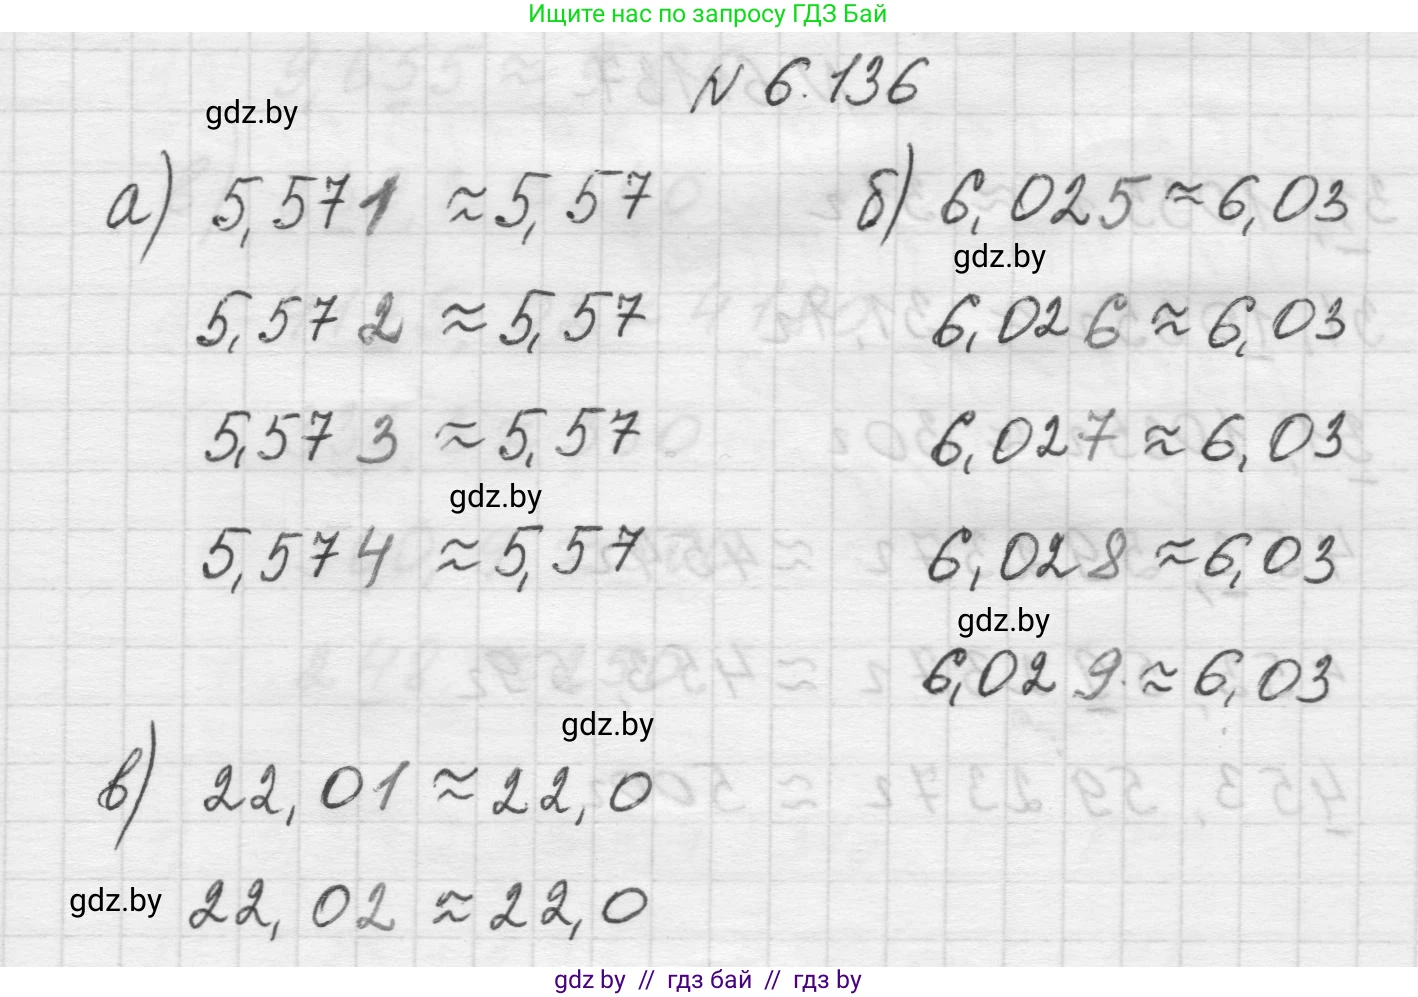 Ищите нас по запросу ГДЗ Бай
N 6.136
gdz.by
а) 5,571 ≈ 5,57
б) 6,025 ≈ 6,03
gdz.by
5,572 ≈ 5,57
6,026 ≈ 6,03
5,573 ≈ 5,57
6,027 ≈ 6,03
gdz.by
5,574 ≈ 5,57
6,028 ≈ 6,03
gdz.by
6,029 ≈ 6,03
gdz.by
в) 22,01 ≈ 22,0
gdz.by
22,02 ≈ 22,0
gdz by // гдз бай // гдз by